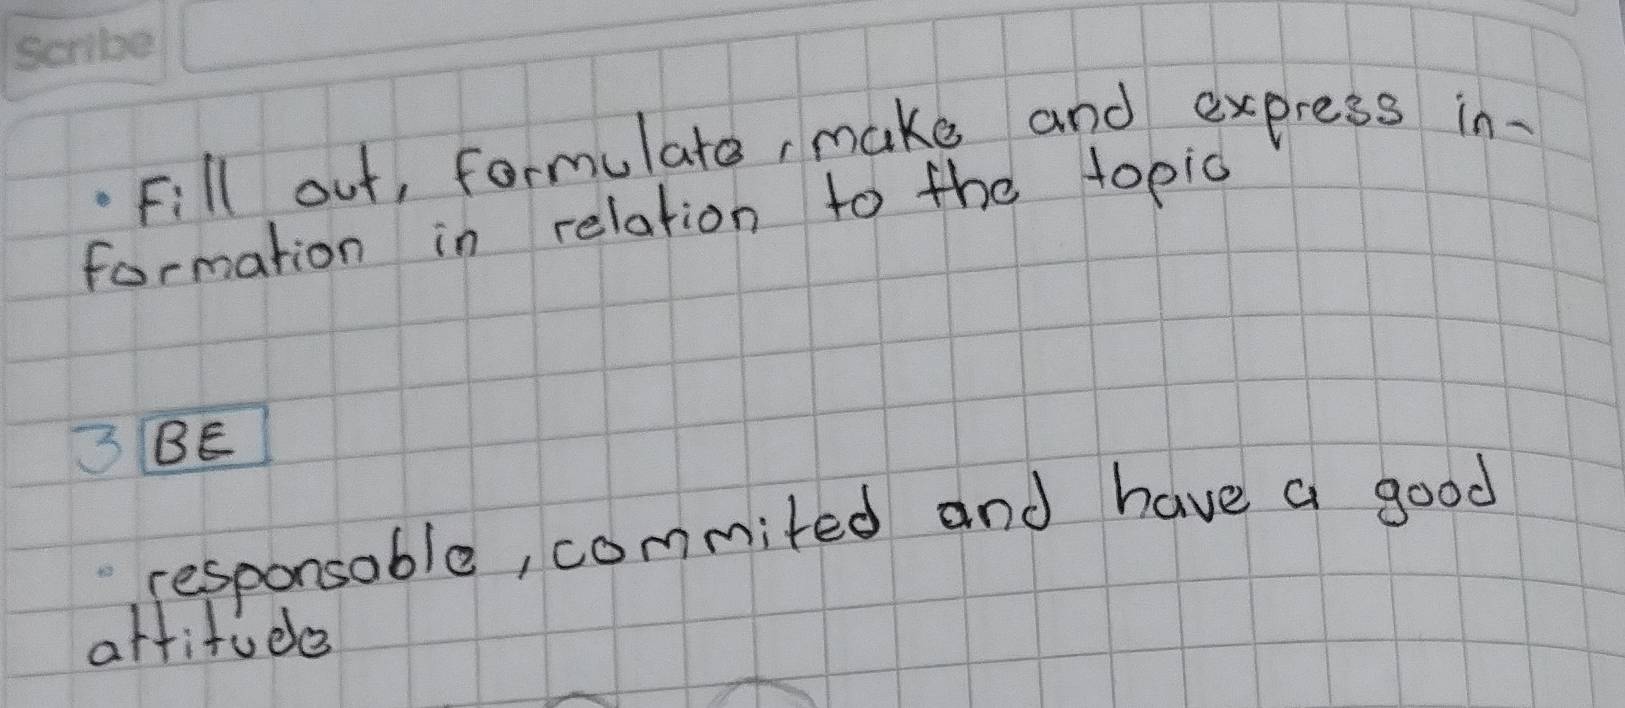 Scribe
• Fill out, formulate, make and express in-
formation in relation to the topic
3 BE
• responsable, commited and have a good
attitude